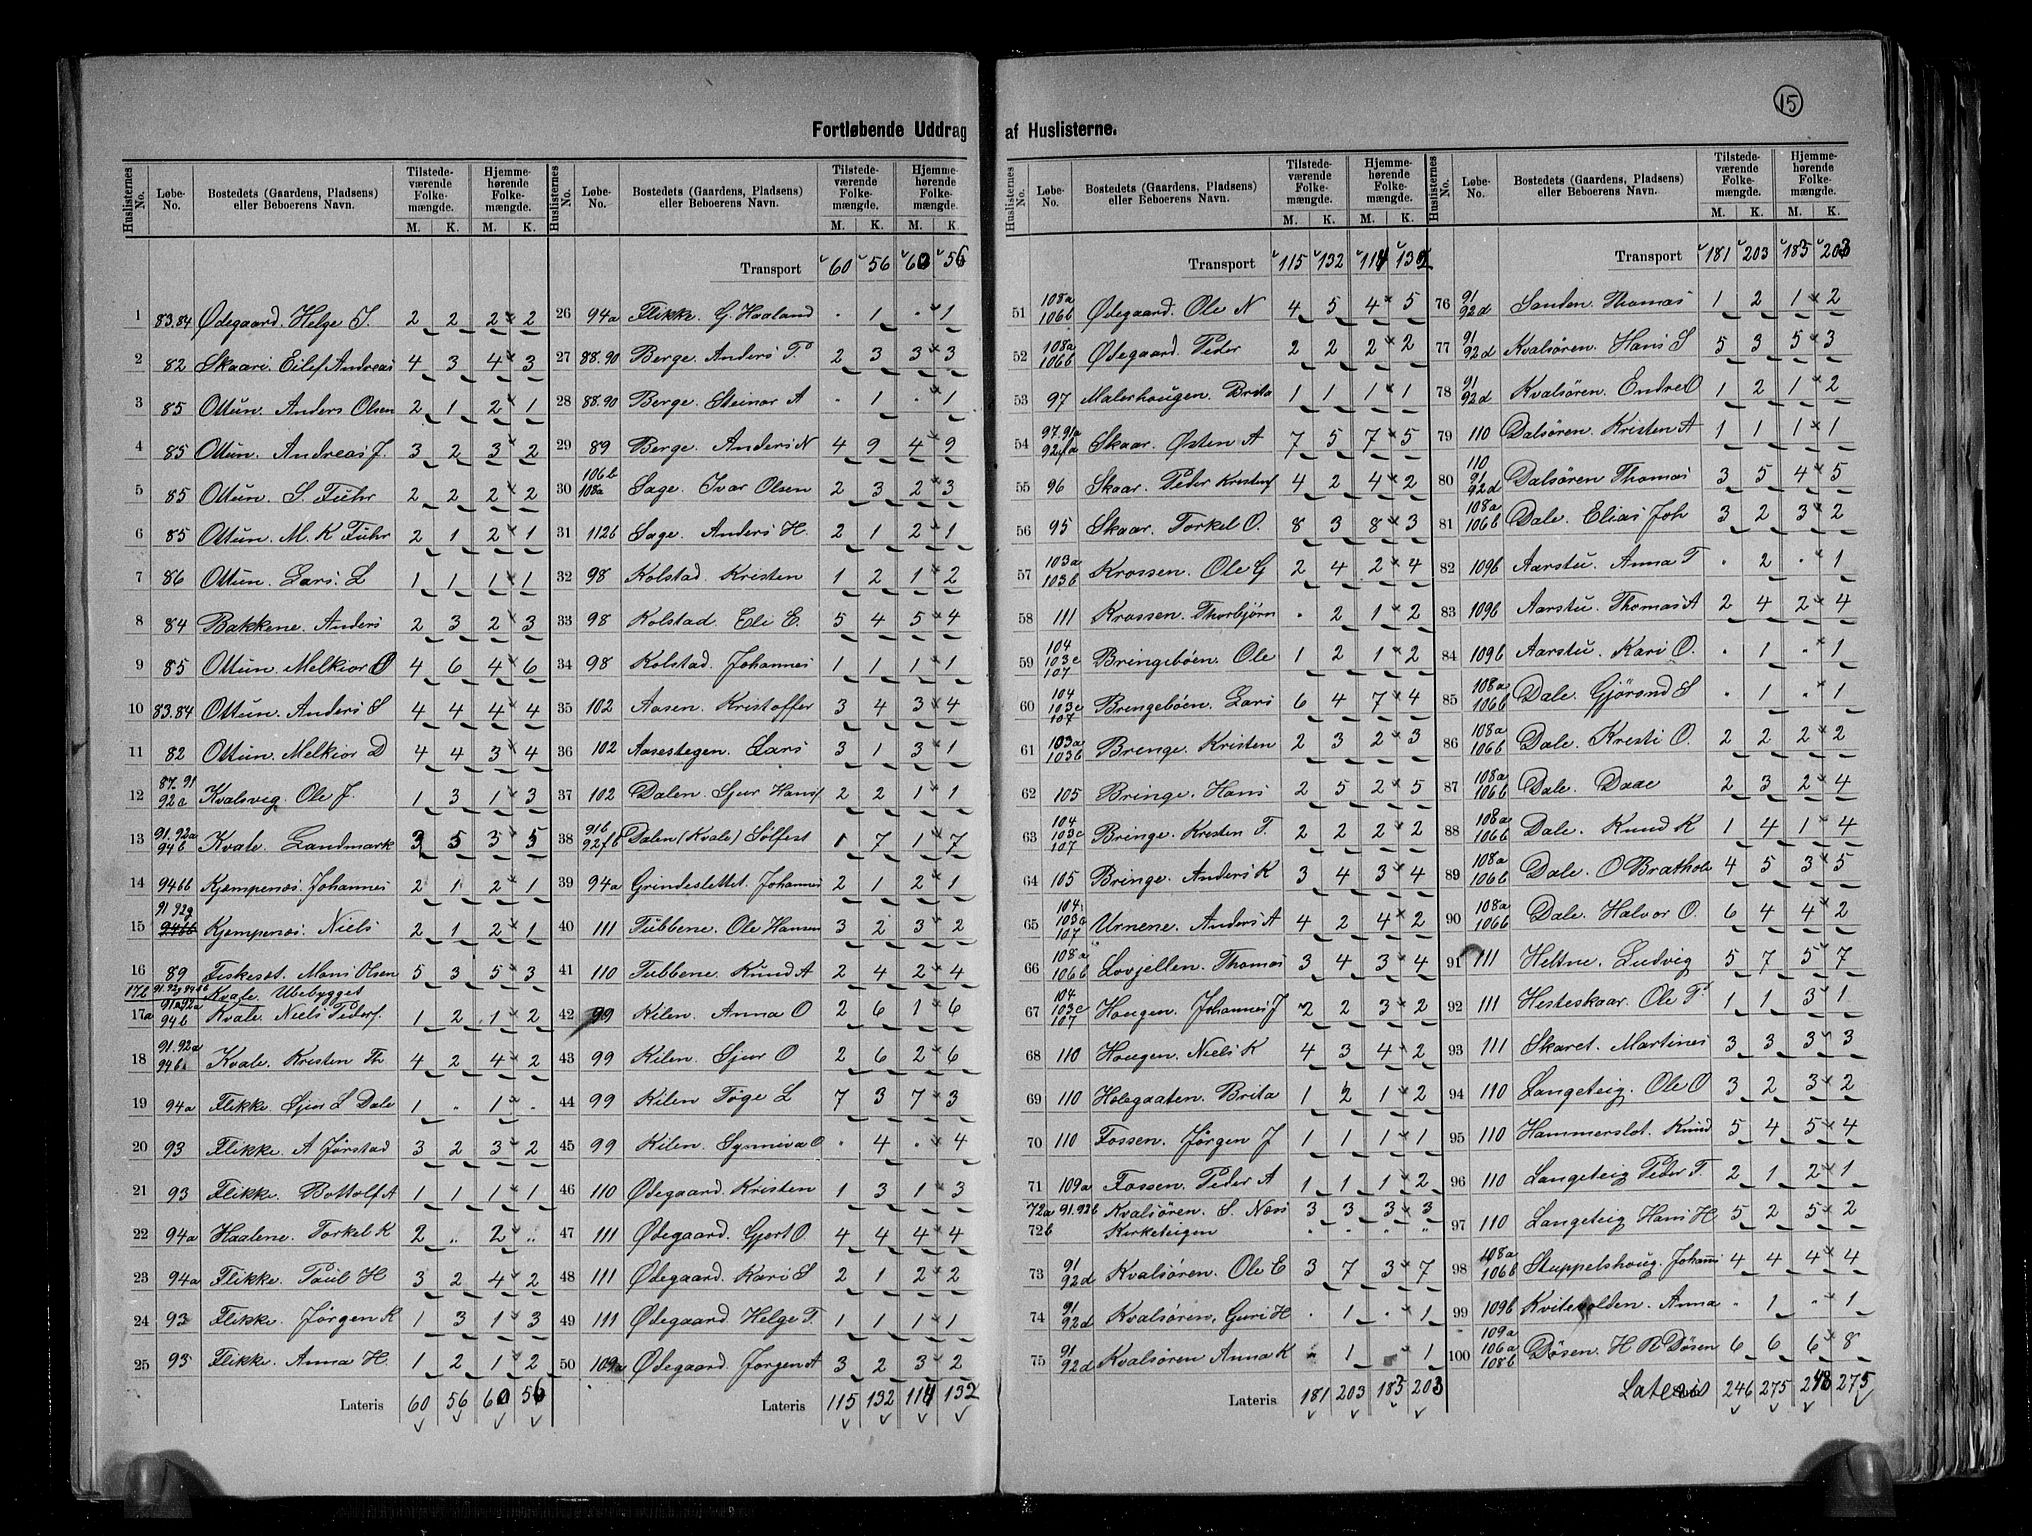 15
Fortløbende Uddrag af Huslisterne.
Huslisternes No. Løbe-No. Bostedets (Gaardens, Pladsens) eller Beboerens Navn. Tilstedeværende Folkemængde. M. K. Hjemmehørende Folkemængde. M. K.
1 83.84 Ødegaard. Helge J. 2 2 2 × 2
2 82 Skaari. Eilef Andreas 4 3 4 × 3
3 85 Ottun. Anders Olsen 2 1 2 × 1
4 85 Ottun. Andreas J. 3 2 3 × 2
5 85 Ottun. S. Fuhr 2 2 2 × 2
6 85 Ottun. M. K Fuhr 2 1 2 × 1
7 86 Ottun. Lars. L 1 1 1 × 1
8 84 Bakkene. Anders 2 3 2 × 3
9 85 Ottun. Melkior O 4 6 4 × 6
10 83.84 Ottun. Anders S 4 4 4 × 4
11 82 Ottun. Melkior D 4 4 3 × 4
12 87.91 92c Kvalsvig. Ole J. 1 3 1 × 3
13 91.92a 94b Kvale. Landmark 3 5 3 × 5
14 94bb Kjempenæs. Johannes 2 1 2 × 1
15 91 92g Kjempenæs. Niels 2 1 2 × 1
16 89 Fiskesæt. Mons Olsen 5 3 5 × 3
17b Kvale. Ubebygget
17a 91a92a 94b Kvale. Niels Pedersf. 1 2 1 × 2
18 91.92a 94b Kvale. Kristen Th 4 2 4 × 2
19 94a Flikke. Sjur L Dale 1 " 1 × "
20 93 Flikke. A Jørstad 3 2 3 × 2
21 93 Flikke. Bottolf A 1 1 1 × 1
22 94a Haalene. Torkel K 2 " 2 × "
23 94a Flikke. Paul H 3 2 4 × 2
24 93 Flikke. Jørgen K 1 3 1 × 3
25 93 Flikke. Anna H. 1 2 1 × 2
Lateris 60 56 60 56
Huslisternes No. Løbe-No. Bostedets (Gaardens, Pladsens) eller Beboerens Navn. Tilstedeværende Folkemængde. M. K. Hjemmehørende Folkemængde. M. K.
Transport 60 56 60 56
26 94a Flikke. G. Haaland " 1 " × 1
27 88.90 Berge. Anders P. 2 3 3 × 3
28 88.90 Berge. Steinar A " 1 " × 1
29 89 Berge. Anders N 4 9 4 × 9
30 106b 108a Sage. Ivar Olsen 2 3 2 × 3
31 112b Sage. Anders H. 2 1 2 × 1
32 98 Kolstad. Kristen 1 2 1 × 2
33 98 Kolstad. Eli E. 5 4 5 × 4
34 98 Kolstad. Johannes 1 1 1 × 1
35 102 Aasen. Kristoffer 3 4 3 × 4
36 102 Aasestegen. Lars 3 1 3 × 1
37 102 Dalen. Sjur Hansf 2 2 1 × 1
38 91b 92fb Dalen (Kvale) Solfest 1 7 1 × 7
39 94a Grindeslettet. Johannes 2 1 2 × 1
40 111 Tubbene. Ole Hansen 3 2 3 × 2
41 110 Tubbene. Knud A 2 4 2 × 4
42 99 Kilen. Anna O 2 6 1 × 6
43 99 Kilen. Sjur O 2 6 2 × 6
44 99 Kilen Tøge L 7 3 7 × 3
45 99 Kilen. Synniva O " 4 " × 4
46 110 Ødegaard. Kristen 1 3 1 × 3
47 111 Ødegaard. Gjert O. 4 4 4 × 4
48 111 Ødegaard. Kari S 2 1 2 × 2
49 111 Ødegaard. Helge T. 1 1 1 × 1
50 109a Ødegaard. Jørgen A 3 2 3 × 2
Lateris 115 132 114 132
Huslisternes No. Løbe-No. Bostedets (Gaardens, Pladsens) eller Beboerens Navn. Tilstedeværende Folkemængde. M. K. Hjemmehørende Folkemængde. M. K.
Transport 115 132 114 132
51 108a 106b Ødegaard. Ole N 4 5 4 × 5
52 108a 106b Ødegaard. Peder 2 2 2 × 2
53 97 Malerhougen. Brita 1 1 1 × 1
54 97.91a 92fa Skaar. Østen A 7 5 7 × 5
55 96 Skaar. Peder Kristenf 4 2 4 × 2
56 95 Skaar. Torkel O. 8 3 8 × 3
57 103a 103b Krossen. Ole G 2 4 2 × 4
58 111 Krossen. Thorbjørn " 2 1 × 2
59 104 103c 107 Bringebøen. Ole 1 2 1 × 2
60 104 103c 107 Bringebøen. Lars 6 4 7 × 4
61 103a 103b Bringe. Kristen 2 3 2 × 3
62 105 Bringe. Hans 2 5 2 × 5
63 104 103c 107 Bringe. Kristen T. 2 2 2 × 2
64 105 Bringe. Anders K 3 4 3 × 4
65 104 103c 107 Urnene. Anders A 4 2 4 × 2
66 108a 106b Lovjellen. Thomas 3 4 3 × 4
67 104 103c 107 Hougen. Johannes J 2 2 3 × 2
68 110 Hougen. Niels K 4 3 4 × 2
69 110 Holegaaten. Brita 1 2 1 × 2
70 110 Fossen. Jørgen J 1 1 1 × 1
71 109a Fossen. Peder A 1 1 1 × 2
72a 91.92b Kvalsøren. S. Næss 3 3 3 × 3
72b Kirketeigen " " " "
73 91 92d Kvalsøren. Ole E 3 7 3 × 7
74 91 92d Kvalsøren. Guri H " 1 " × 1
75 91 92d Kvalsøren Anna K " 1 " 1
Lateris 181 203 183 203
Huslisternes No. Løbe-No. Bostedets (Gaardens, Pladsens) eller Beboerens Navn. Tilstedeværende Folkemængde. M. K. Hjemmehørende Folkemængde. M. K.
Transport 181 203 183 203
76 91 92d Sanden. Thomas 1 2 1 × 2
77 91 92d Kvalsøren. Hans S 5 3 5 × 3
78 91 92d Kvalsøren. Endre O 1 2 1 × 2
79 110 Dalsøren. Kristen A 1 1 1 × 1
80 110 91 92d Dalsøren Thomas 3 5 4 × 5
81 108a 106b Dale. Elias Joh 3 2 3 × 2
82 109b Aarstu. Anna T " 2 " × 1
83 109b Aarstu. Thomas A 2 4 2 × 4
84 109b Aarstu. Kari O. " 1 " × 1
85 108a 106b Dale. Gjørond S " 1 " × 1
86 108a 106b Dale. Kristi O. 2 2 2 × 2
87 108a 106b Dale. Daae 2 3 2 × 4
88 108a 106b Dale. Knud K 1 4 1 × 4
89 108a 106b Dale. O Brathole 4 5 3 × 5
90 108a 106b Dale. Halvor O. 6 4 4 × 2
91 111 Heltne. Ludvig 5 7 5 × 7
92 111 Hesteskaar. Ole P. 1 1 3 × 1
93 111 Skaret. Martines 3 3 3 × 3
94 110 Langeteig. Ole O 3 2 3 × 2
95 110 Hammerslot. Knud 5 4 5 × 4
96 110 Langeteig Peder T. 2 1 2 × 1
97 110 Langeteig Hans H 5 2 5 × 2
98 108a 106b Stuppelshoug. Johanns 4 4 4 × 4
99 109b Kvitevolden. Anna " 1 " × 1
100 109a 106a 108b Døsen. H R Døsen 6 6 6 × 8
Lateris 246 275 248 275